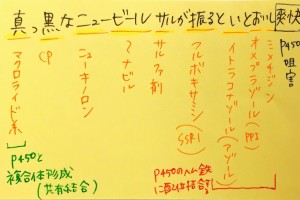 真っ黒なニュービール サルが振るといとおし爽快
P450
阻害
シメチジン
オメプラゾール(PPI)
イトラコナゾール(アゾール)
フルボキサミン(SSRI)
サルファ剤
〜ナビル
ニューキノロン
CP
マクロライド系
P450のヘム鉄
に配位結合
P450と
複合体形成
(共有結合)